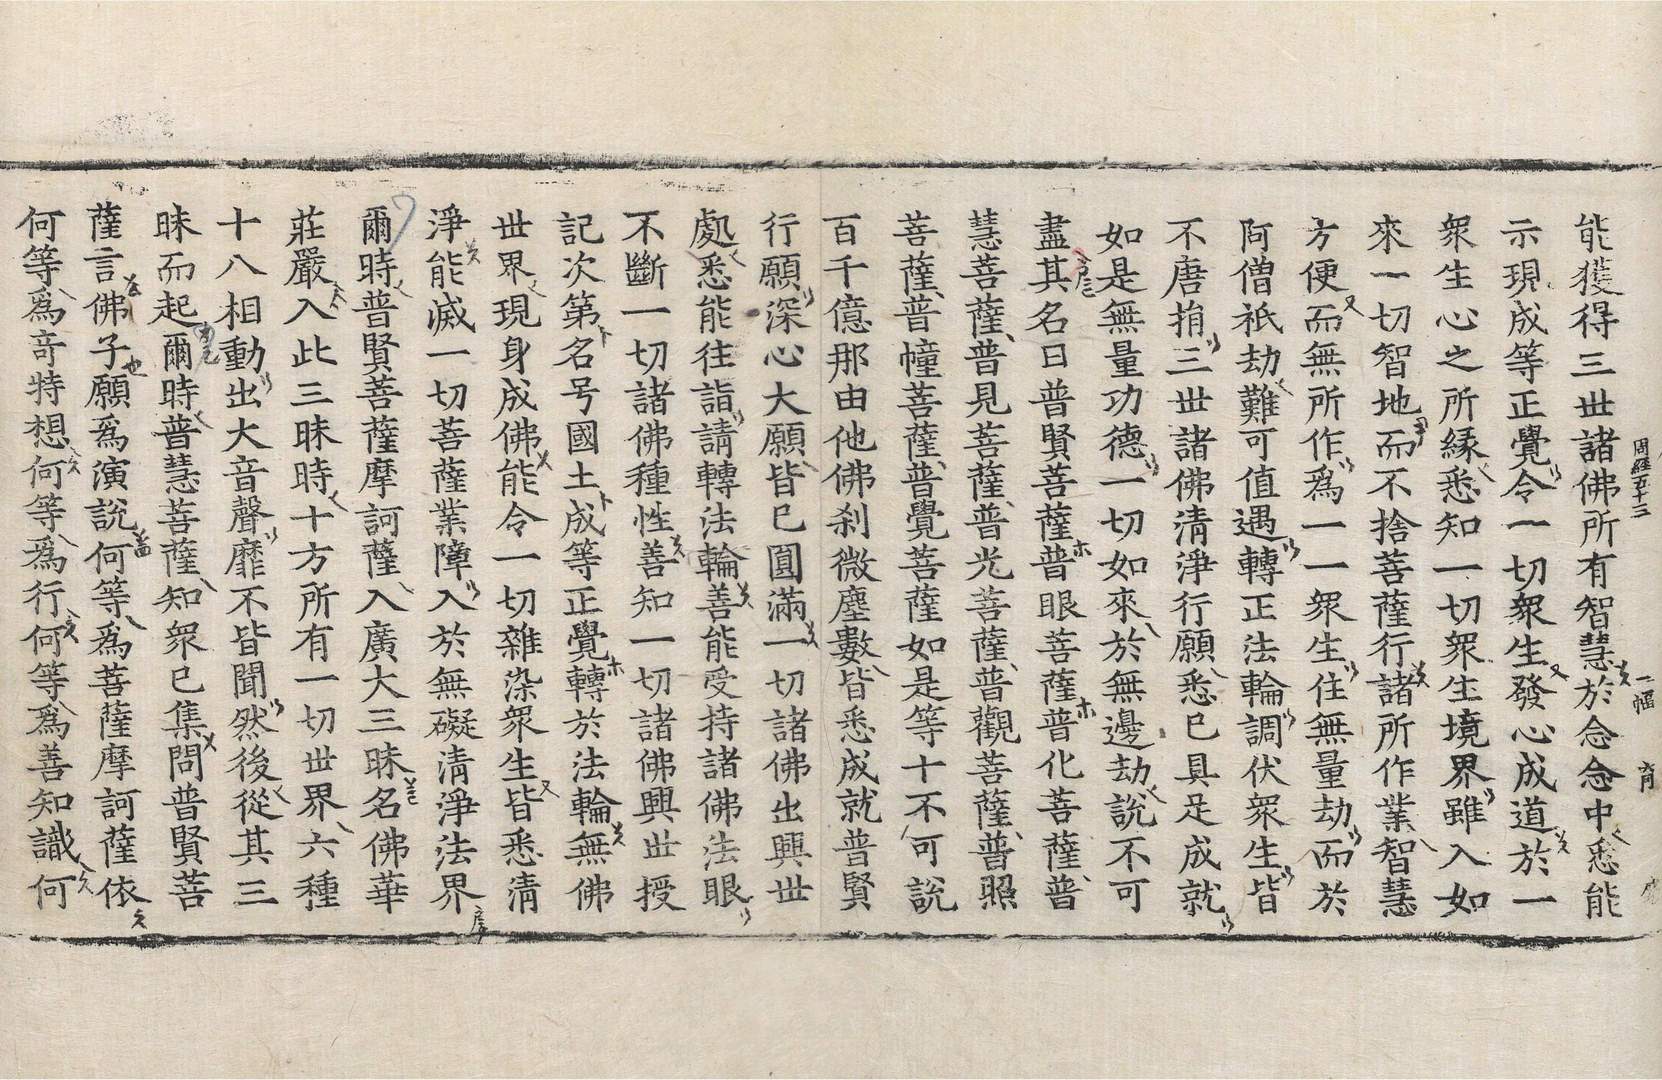 周經五十三 一幅 六月
能獲得三世諸佛所有智慧於念念中悉能
示現成等正覺令一切衆生發心成道於一
衆生心之所緣悉知一切衆生境界雖入如
來一切智地而不捨菩薩行諸所作業智慧
方便而無所作爲一一衆生住無量劫而於
阿僧祇劫難可值遇轉正法輪調伏衆生皆
不唐捐三世諸佛淸淨行願悉已具足成就
如是無量功德一切如來於無邊劫說不可
盡其名曰普賢菩薩普眼菩薩普化菩薩普
慧菩薩普見菩薩普光菩薩普觀菩薩普照
菩薩普幢菩薩普覺菩薩如是等十不可說
百千億那由他佛刹微塵數皆悉成就普賢
行願深心大願皆已圓滿一切諸佛出興世
處悉能往詣請轉法輪善能受持諸佛法眼
不斷一切諸佛種性善知一切諸佛興世授
記次第名号國土成等正覺轉於法輪無佛
世界現身成佛能令一切雜染衆生皆悉淸
淨能滅一切菩薩業障入於無礙淸淨法界
爾時普賢菩薩摩訶薩入廣大三昧名佛華
莊嚴入此三昧時十方所有一切世界六種
十八相動出大音聲靡不皆聞然後從其三
昧而起爾時普慧菩薩知衆已集問普賢菩
薩言佛子願爲演說何等爲菩薩摩訶薩依
何等爲奇特想何等爲行何等爲善知識何